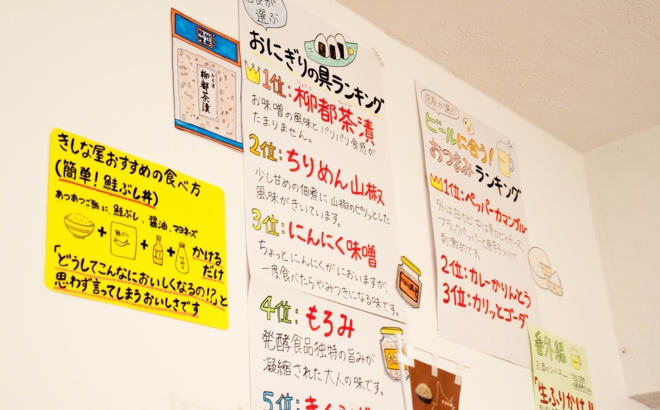 きしな屋おすすめの食べ方
(簡単!鮭ぶし丼)
あつあつご飯に、鮭ぶし、醤油、マヨネーズ
かける
だけ
「どうしてこんなにおいしくなるの!?」と
思わず言ってしまうおいしさです
柳都茶漬
選ぶ
おにぎりの具ランキング
1位:柳都茶漬
お味噌の風味とパリパリ食感が
たまりません。
2位:ちりめん山椒
少し甘めの佃煮に山椒のピリッとした
風味がきいています。
3位:にんにく味噌
ちょっとにんにくがにおいますが、
一度食べたらやみつきになる味です。
4位:もろみ
発酵食品独特の旨みが
凝縮された大人の味です。
5位:
店長が選ぶ
ビールに合う!
おつまみランキング
1位:ペッパーカマンブルー
ブラックペッパーと
刺激的です。
2位:カレーかりんとう
3位:カリッとゴーダ
番外編
「生ふりかけ」